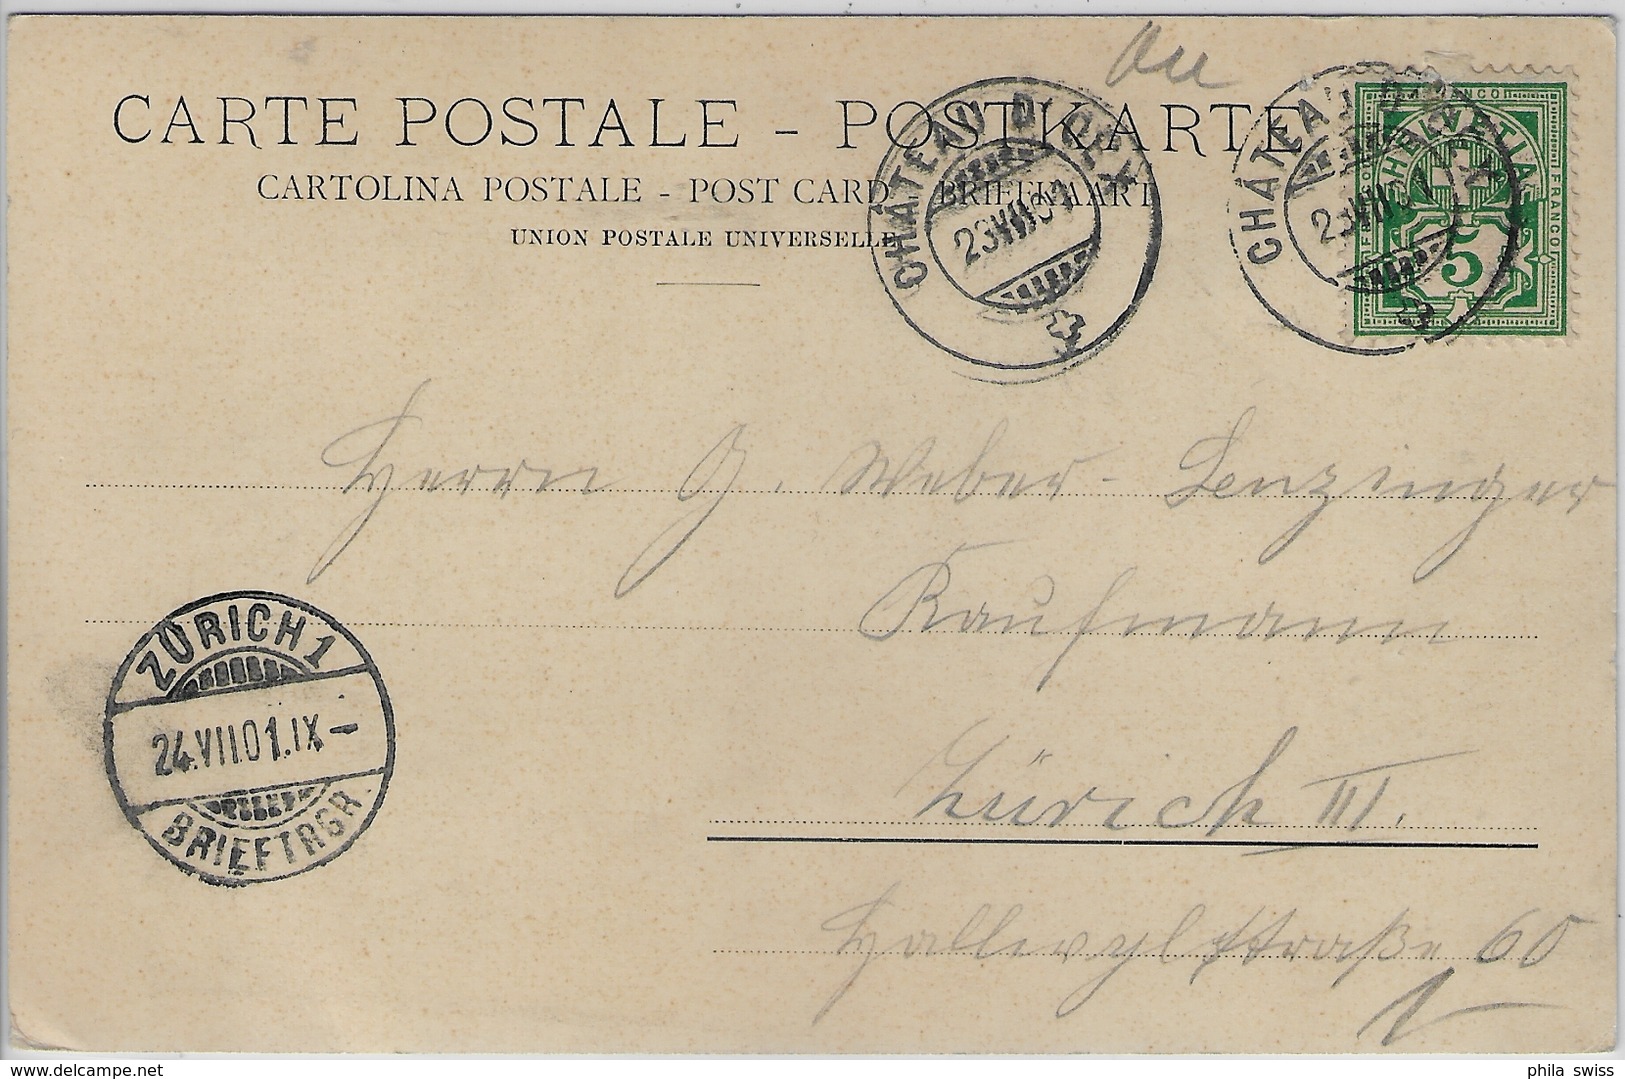 CARTE POSTALE - POSTKARTE
CARTOLINA POSTALE - POST CARD - BRIEFKAART
UNION POSTALE UNIVERSELLE
CHÂTEAU D'ŒX
23.VII.01
CHÂTEAU D'ŒX
23.VII.01.IX
FRANCO
HELVETIA
FRANCO
5
Herrn G. Weber-Lenzinger
Kaufmann
Zürich III.
Hallwylstraße 60
1
ZÜRICH 1
24.VII.01.IX-
BRIEFTRGR.
phila swiss